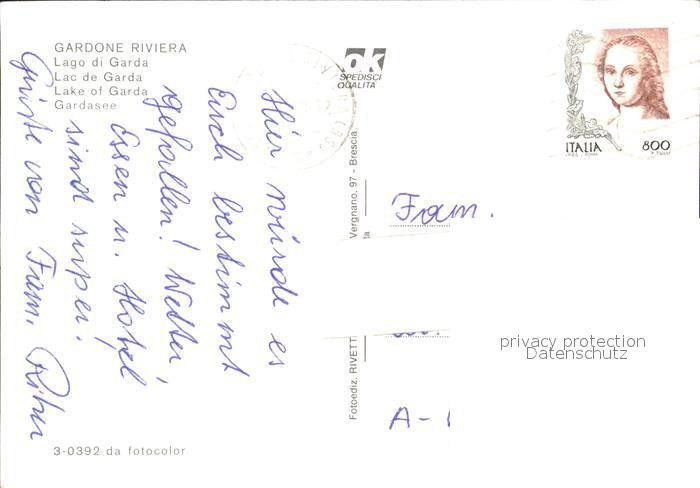 GARDONE RIVIERA
Lago di Garda
Lac de Garda
Lake of Garda
Gardasee
ok
SPEDISCI
QUALITÀ
ITALIA 800
Hier würde es
Euch bestimmt
gefallen! Wetter,
Essen u. Hotel
sind super.
Grüße von Fam.
Fotoediz. RIVETT
Vergnano, 97 - Brescia
Fam.
A-
privacy protection
Datenschutz
3-0392 da fotocolor